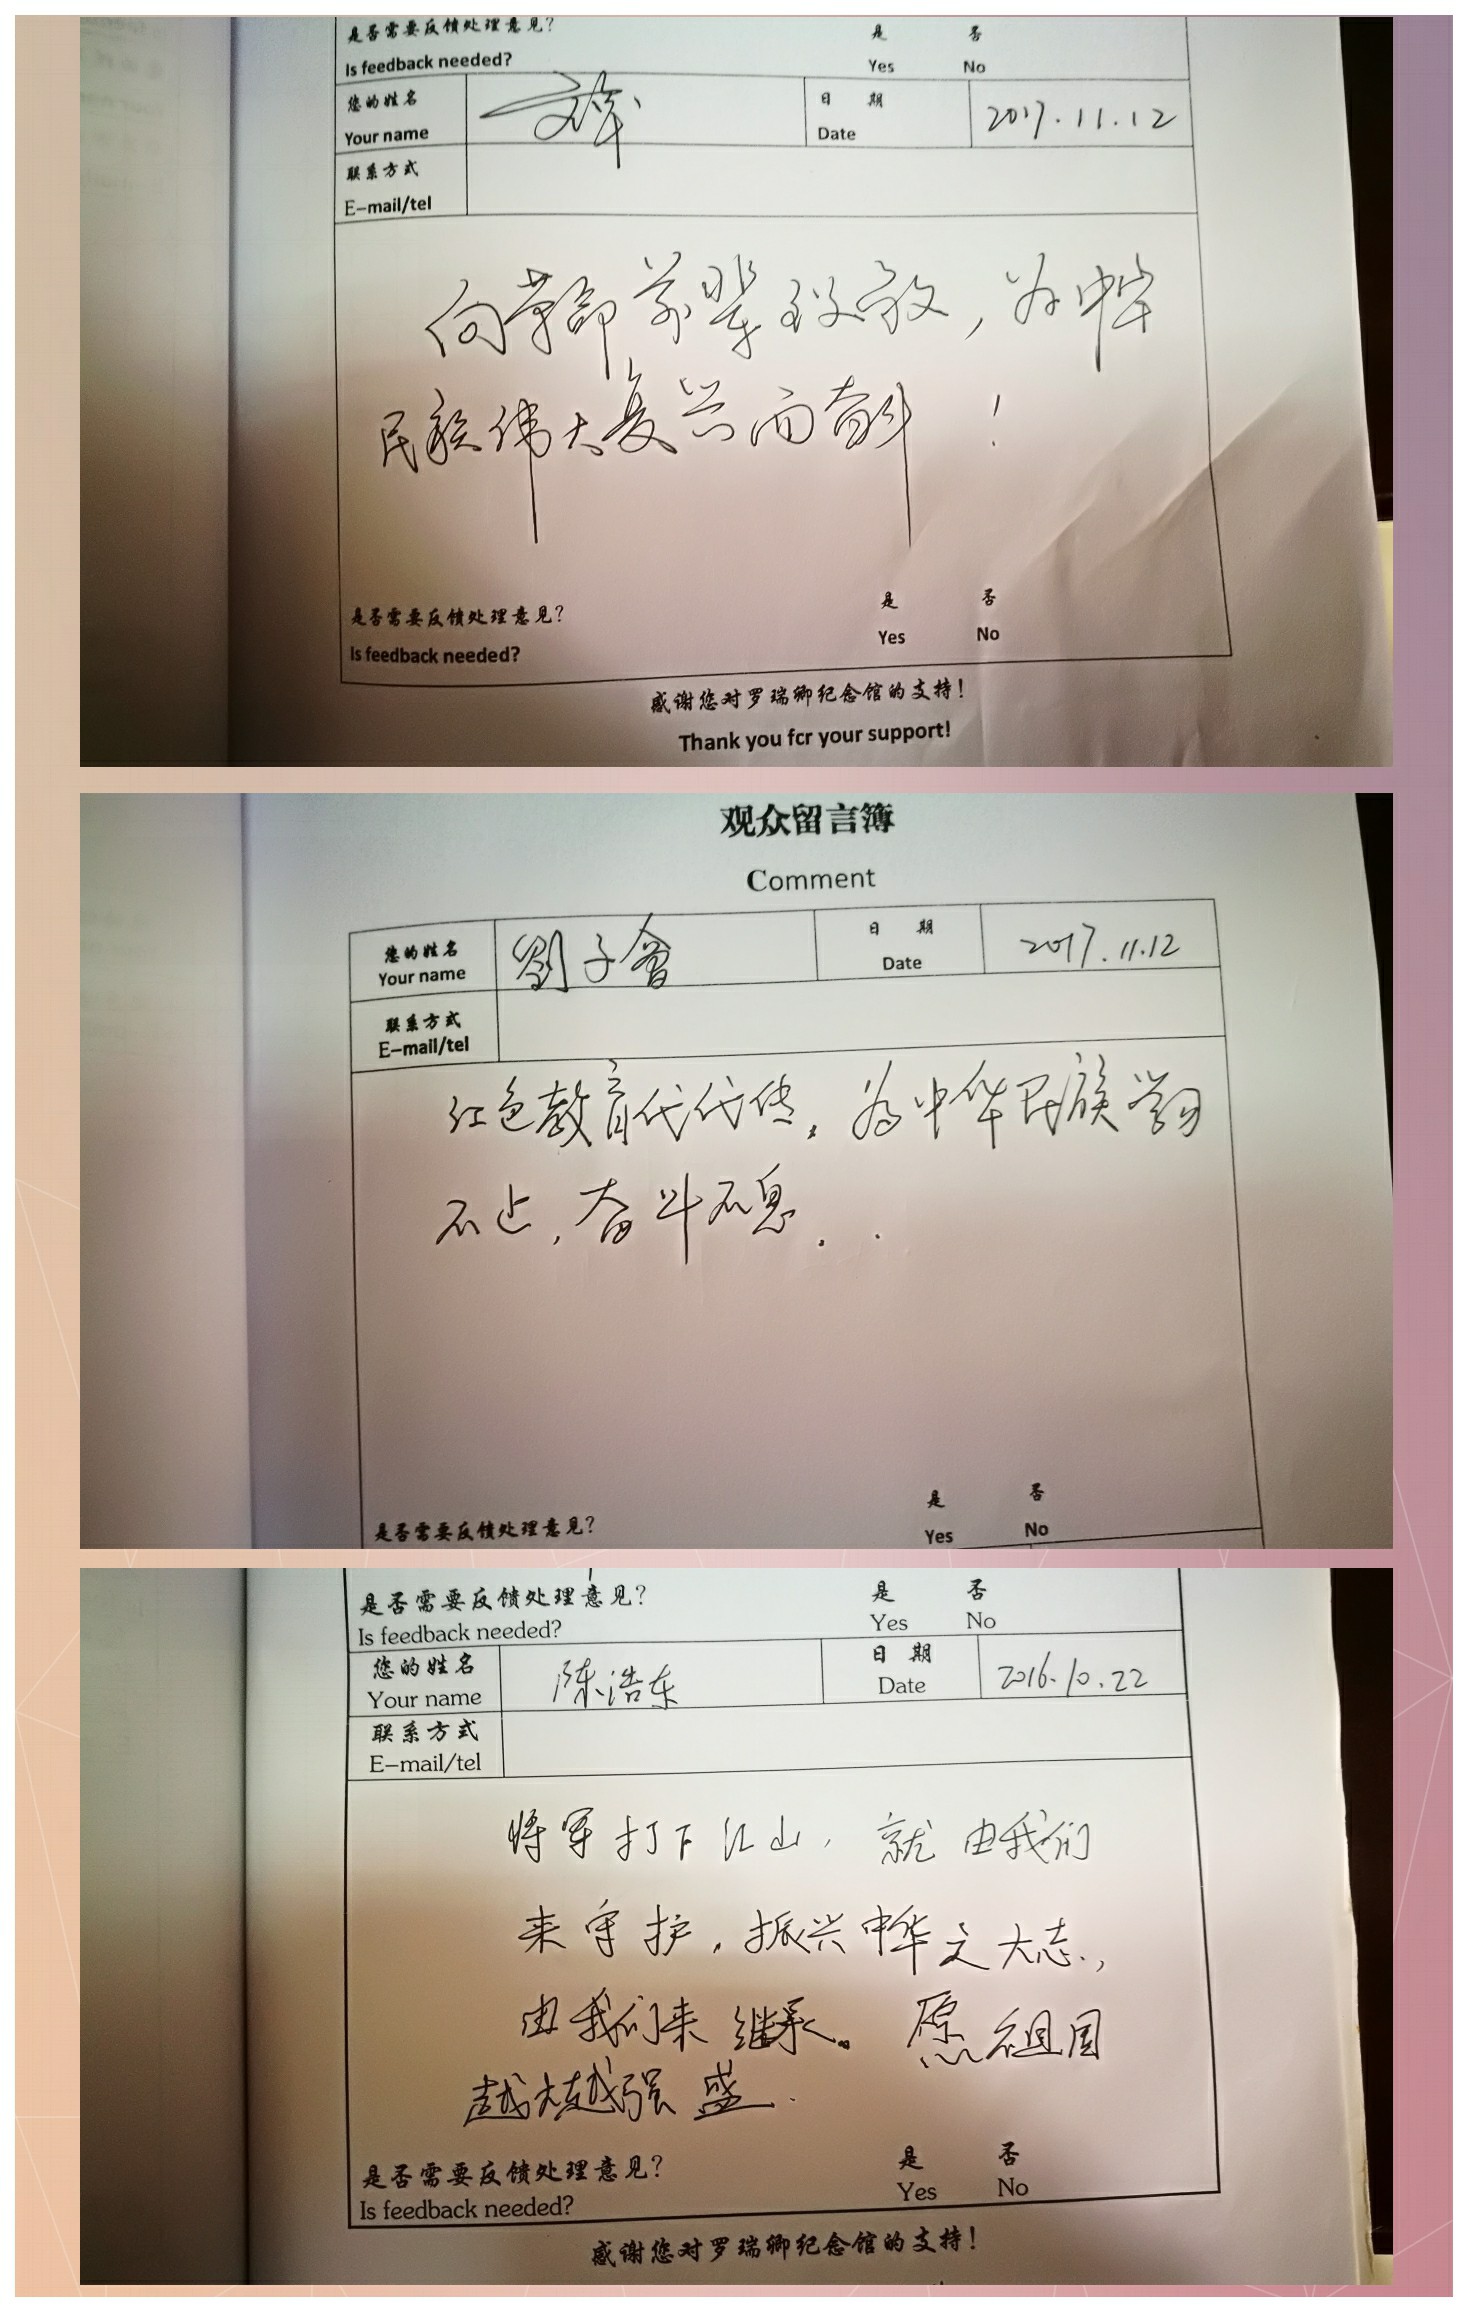 是否需要反馈处理意见？ 是 否
Is feedback needed? Yes No
您的姓名 日 期
Your name Date 2017.11.12
联系方式
E-mail/tel
向革命前辈致敬，为中华
民族伟大复兴而奋斗！
是否需要反馈处理意见？ 是 否
Is feedback needed? Yes No
感谢您对罗瑞卿纪念馆的支持！
Thank you for your support!
观众留言簿
Comment
您的姓名 劉子會 日 期
Your name Date 2017.11.12
联系方式
E-mail/tel
红色教育代代传，为中华民族学习
不止，奋斗不息．．
是否需要反馈处理意见？ 是 否
Yes No
是否需要反馈处理意见？ 是 否
Is feedback needed? Yes No
您的姓名 陈浩东 日 期
Your name Date 2016.10.22
联系方式
E-mail/tel
将军打下江山，就由我们
来守护，振兴中华之大志，
由我们来继承。愿祖国
越大越强盛．
是否需要反馈处理意见？ 是 否
Is feedback needed? Yes No
感谢您对罗瑞卿纪念馆的支持！